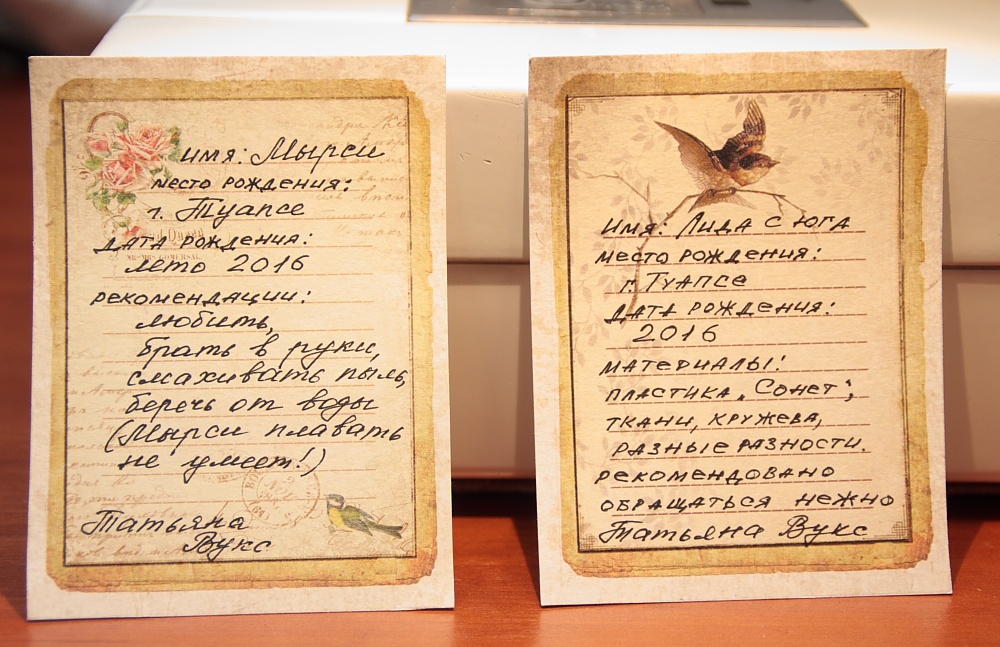 имя: Мырси
место рождения:
г. Туапсе
дата рождения:
лето 2016
MR·MRS GOMERSAL
рекомендации:
любить,
брать в руки,
смахивать пыль,
беречь от воды
(Мырси плавать
не умеет!)
Татьяна
Вукс
имя: Лида с юга
место рождения:
г. Туапсе
дата рождения:
2016
материалы:
пластика „Сонет",
ткани, кружева,
разные разности.
рекомендовано
обращаться нежно
Татьяна Вукс